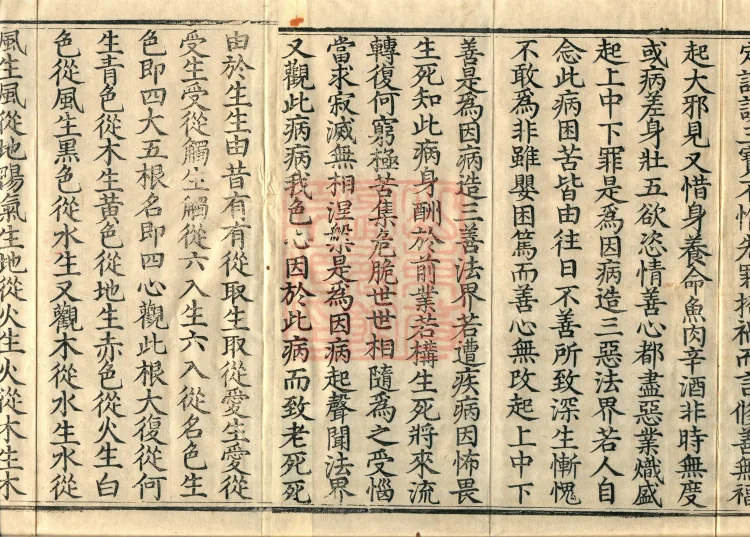 起大邪見又惜身養命魚肉辛酒非時無度
或病差身壯五欲恣情善心都盡惡業熾盛
起上中下罪是為因病造三惡法界若人自
念此病困苦皆由往日不善所致深生慚愧
不敢為非雖嬰困篤而善心無改起上中下
善是為因病造三善法界若遭疾病因怖畏
生死知此病身酬於前業若構生死將來流
轉復何窮極苦集危脆世世相隨為之受惱
當求寂滅無相涅槃是為因病起聲聞法界
又觀此病病我色心因於此病而致老死死
由於生生由昔有有從取生取從愛生愛從
受生受從觸生觸從六入生六入從名色生
色即四大五根名即四心觀此根大復從何
生青色從木生黃色從地生赤色從火生白
色從風生黑色從水生又觀木從水生水從
風生風從地陽氣生地從火生火從木生木